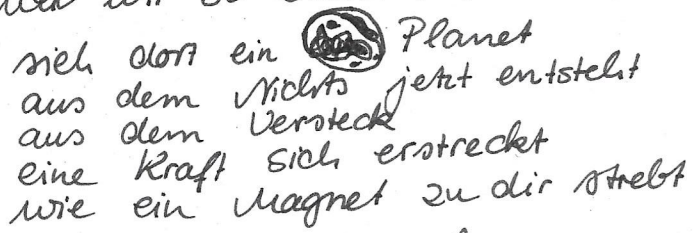 sieh dort ein Planet
aus dem Nichts jetzt entsteht
aus dem Versteck
eine Kraft sich erstreckt
wie ein Magnet zu dir strebt